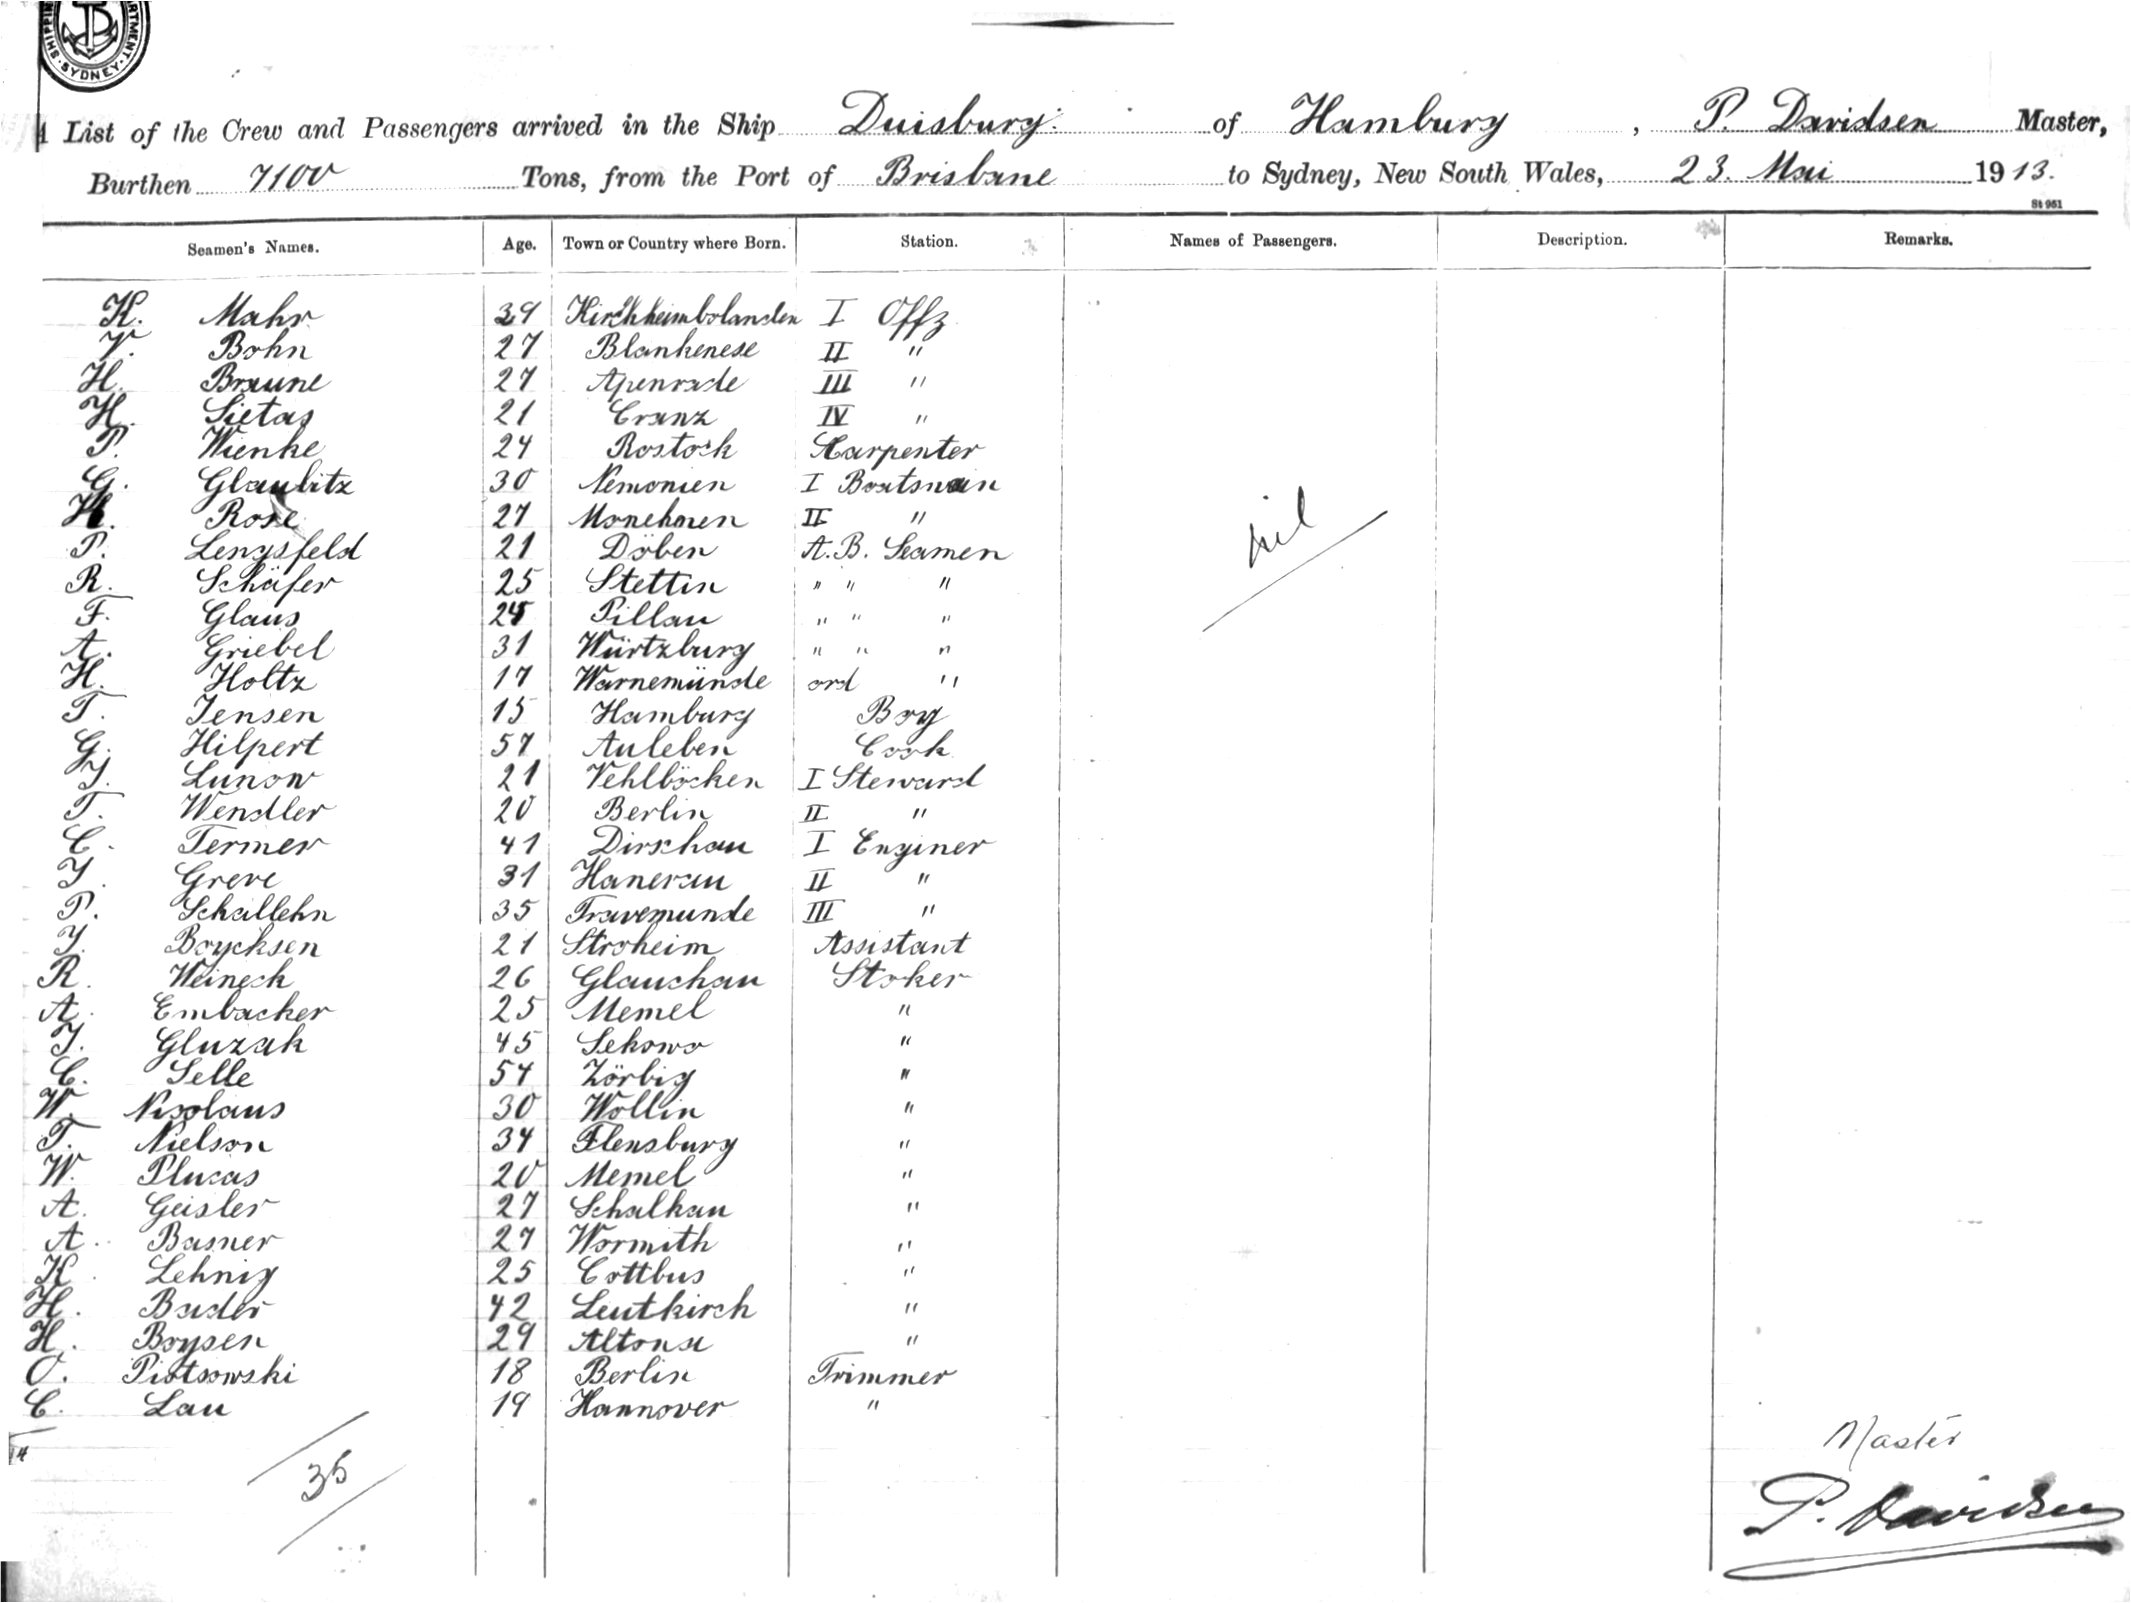 SYDNEY
A List of the Crew and Passengers arrived in the Ship Duisburg. of Hamburg, P. Davidsen Master,
Burthen 7100 Tons, from the Port of Brisbane to Sydney, New South Wales, 23. Mai 1913.
St 961
Seamen's Names. Age. Town or Country where Born. Station. Names of Passengers. Description. Remarks.
K. Mahr 39 Kirchheimbolanden I Offz
V. Bohn 27 Blankenese II "
H. Braune 27 Apenrade III "
H. Sietas 21 Cranz IV "
P. Wienke 24 Rostock Carpenter
G. Glaubitz 30 Nemonien I Boatsman
H. Rose 27 Monehmen II "
P. Lengsfeld 21 Döben A.B. Seamen
R. Schäfer 25 Stettin " " "
F. Glaus 25 Pillau " " "
A. Griebel 31 Würtzburg " " "
H. Holtz 17 Warnemünde ord "
T. Jensen 15 Hamburg Boy
G. Hilpert 57 Auleben Cook
J. Lunow 21 Vehlböcken I Steward
T. Wendler 20 Berlin II "
C. Termer 41 Dirschau I Enginer
J. Greve 31 Hanerau II "
P. Schallehn 35 Travemunde III "
J. Boycksen 21 Stroheim Assistant
R. Weineck 26 Glauchau Stoker
A. Embacher 25 Memel "
J. Gluzak 45 Sekowo "
C. Selle 54 Zörbig "
W. Nicolaus 30 Wollin "
T. Nielson 34 Flensburg "
W. Plucas 20 Memel "
A. Geisler 27 Schalkau "
A. Basner 27 Wormith "
K. Lehnig 25 Cottbus "
H. Bader 42 Leutkirch "
H. Boysen 29 Altona "
O. Piotrowski 18 Berlin Trimmer
C. Lau 19 Hannover "
nil
34
35
Master
P. Davidsen